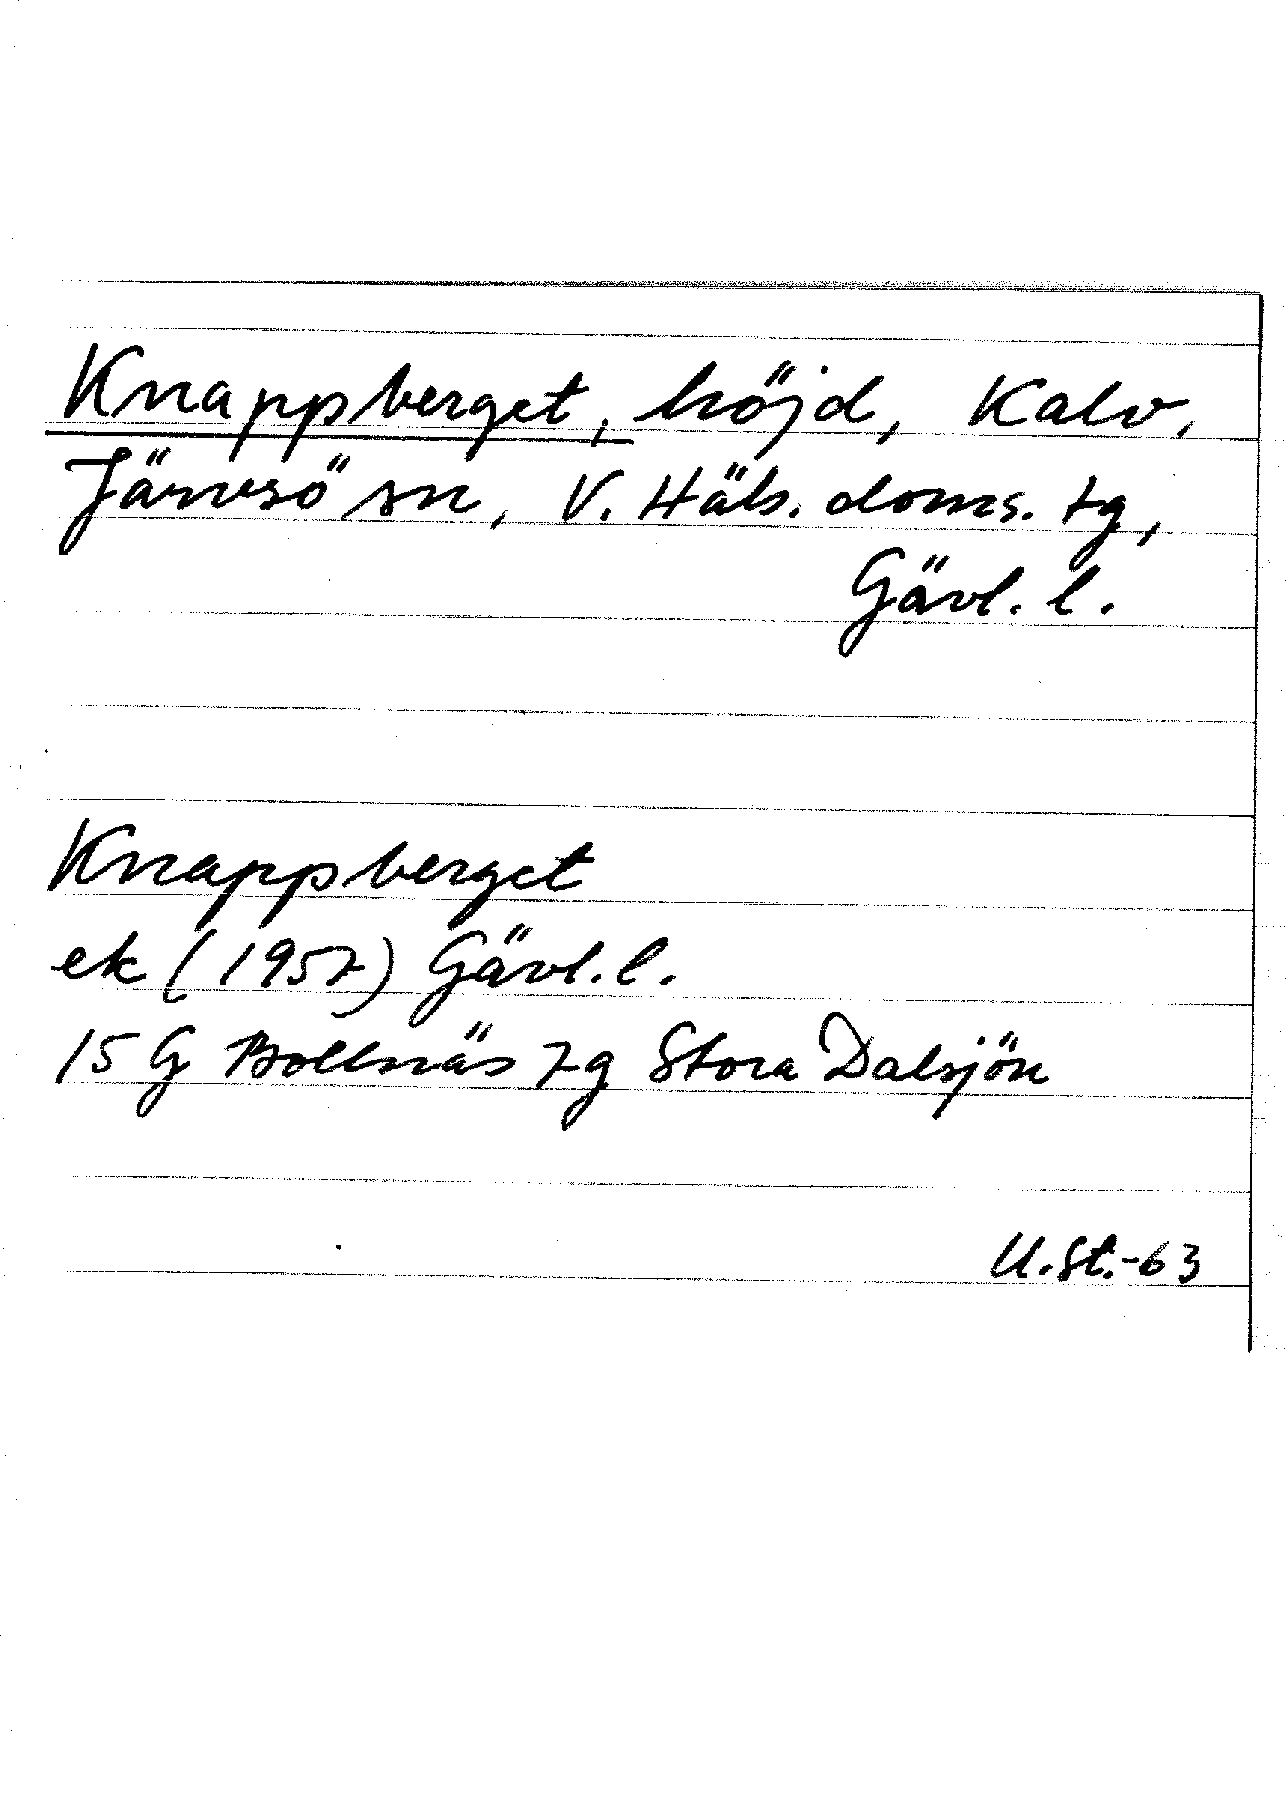 Knappberget, höjd, Kalv,
Järvsö sn, V. Häls. doms. tg,
Gävl. l.
Knappberget
ek (1957) Gävl. l.
15 G Bollnäs 7g Stora Dalsjön
U.St.-63